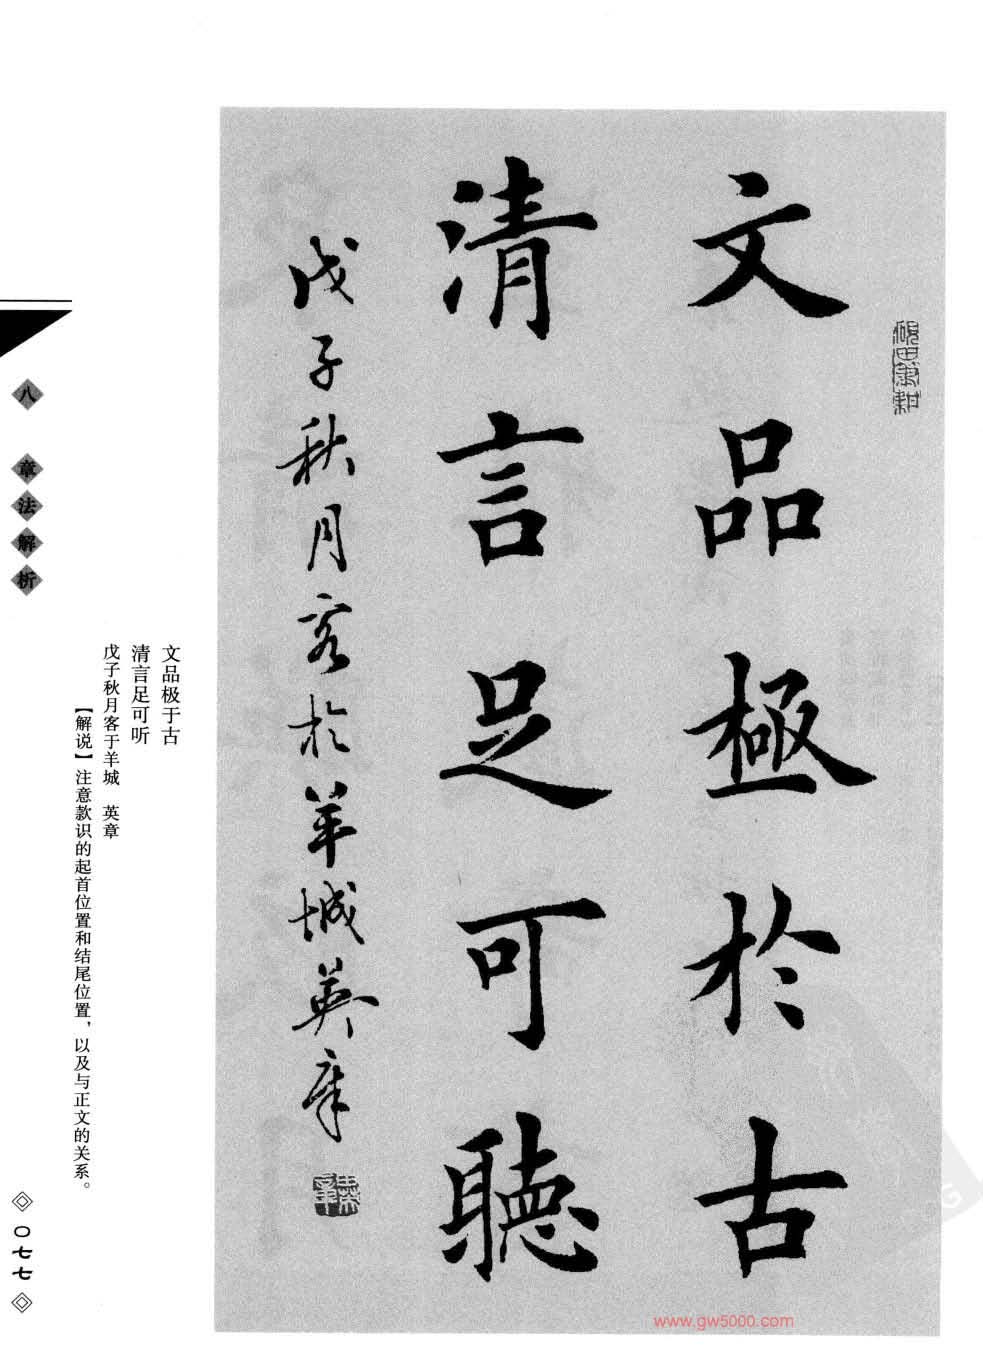 文品極於古
清言足可聽
戊子秋月客於羊城英章
文品极于古
清言足可听
戊子秋月客于羊城 英章
【解说】注意款识的起首位置和结尾位置，以及与正文的关系。
八 章法解析
〇七七
www.gw5000.com